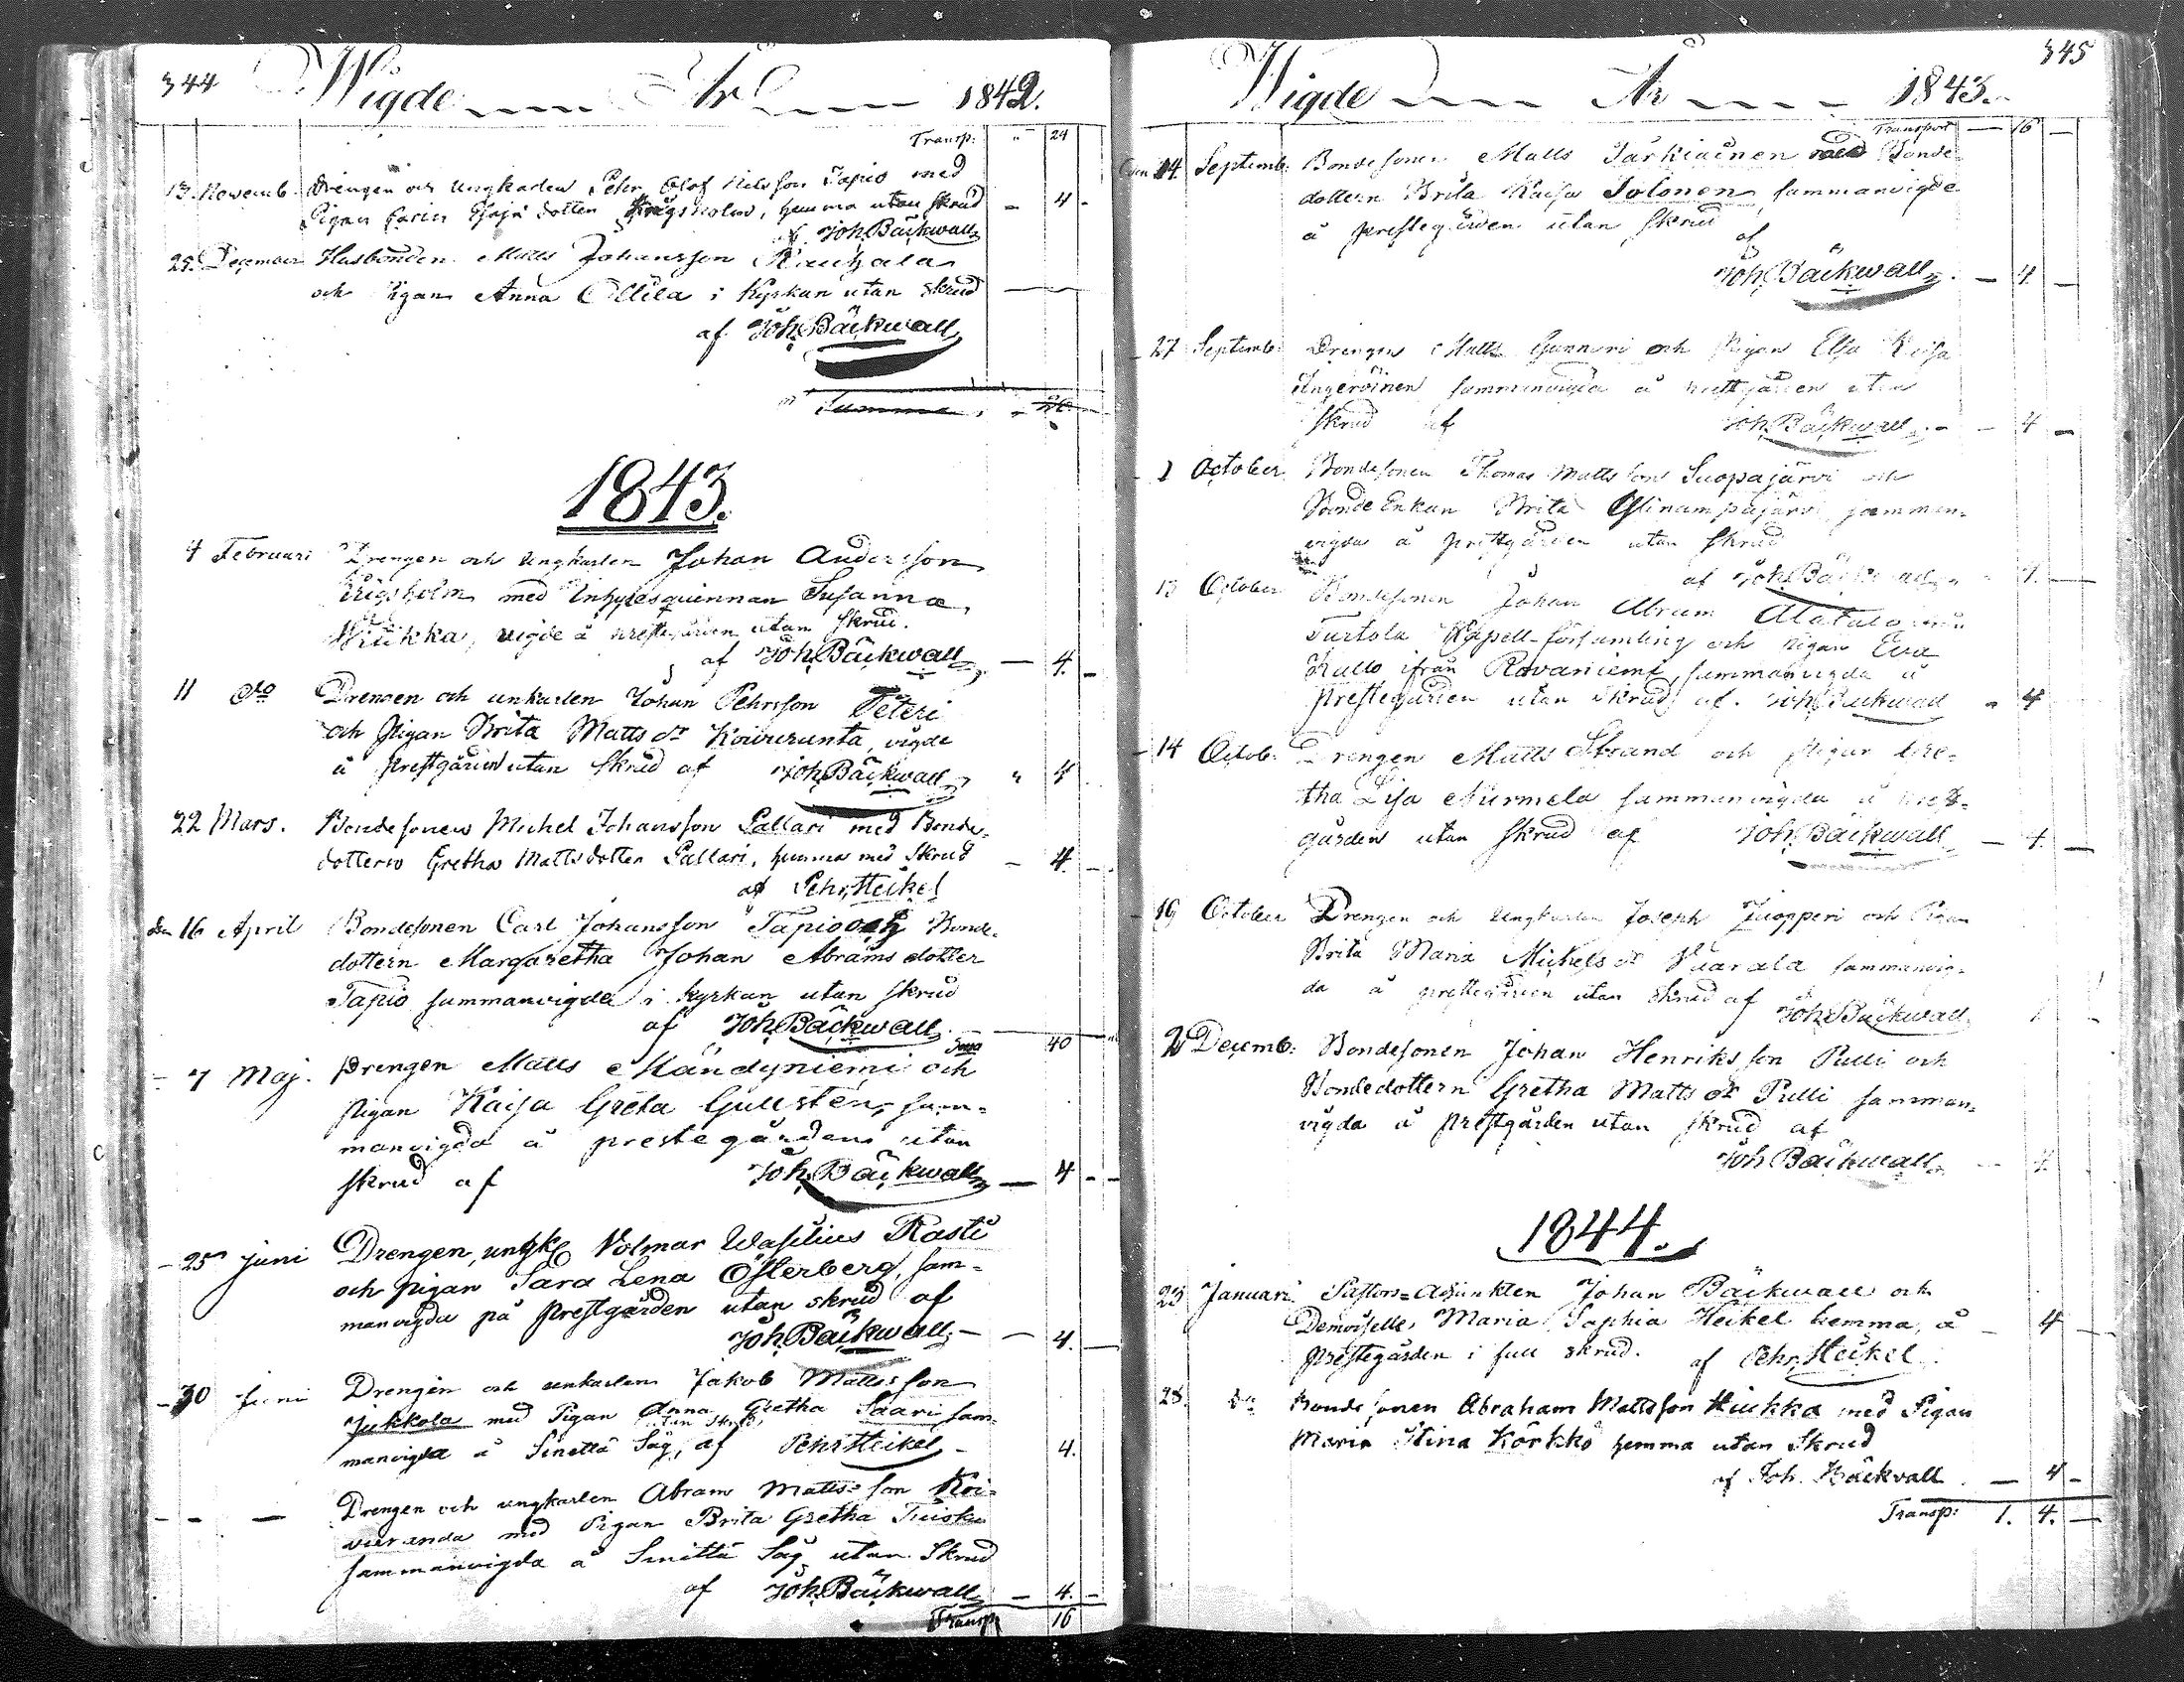 344 Wigde År 1842.
Transp: " 24
13. Novemb. Drengen och Ungkarlen Pehr Olof Nilsson Tapio med
Pigan Carin Esajæ dotter Krigsholm, hemma utan skrud — 4 -
af Joh. Bäckwall
25. December Husbonden Matts Johansson Rautjala
och Pigan Anna Ollila i Kyrkan utan skrud —
af Joh. Bäckwall
Summa
1843.
4 Februari Drengen och Ungkarlen Johan Andersson
Krigsholm med Inhysesqvinnan Susanna
Niukka, vigde å prestegården utan skrud.
af Joh. Bäckwall — 4. -
11 dto Drengen och unkarlen Johan Pehrsson Peteri
och Pigan Brita Matts dr Koivuranta, vigde
å prestgården utan skrud af Joh. Bäckwall " 4
22 Mars. Bondesonen Michel Johansson Pallari med Bonde-
dottern Gretha Mattsdotter Pallari, hemma med skrud — 4. -
af Pehr Heikel
den 16 April Bondesonen Carl Johansson Tapio och Bonde-
dottern Margaretha Johan Abrams dotter
Tapio sammanvigda i kyrkan utan skrud
af Joh. Bäckwall —
Sma 40
- 7 Maj. Drengen Matts Mändyniemi och
pigan Kaisa Greta Gullsten, sam-
manvigda å prestegården utan
skrud af Joh. Bäckwall — 4 -
- 25 juni Drengen, ungk. Volmar Wasilius Rasti
och pigan Sara Lena Österberg, sam-
manvigda på prestgården utan skrud af
Joh. Bäckwall, — 4. —
- 30 juni Drengen och unkarlen Jakob Mattsson
Jukkola med Pigan Anna Gretha Saari sam-
utan skrud,
manvigda å Sinettä Såg, af Pehr Heikel - 4.
- - — Drengen och ungkarlen Abram Matts-son Koi-
vuranda med Pigan Brita Gretha Tuisku
sammanvigda å Sinettä Såg utan skrud
af Joh. Bäckwall — 4. -
Transp. 16
Wigde År 1843. 345
Transport — 16 —
den 14 Septemb: Bondesonen Matts Särkiäinen med Bonde-
dottern Brita Kaisa Tolonen, sammanvigde
å prestegården utan skrud
af
Joh. Bäckwall. — 4. —
- 27 Septemb: Drengen Matts Gunnari och Pigan Elsa Kaisa
Ingeröinen sammanvigda å prestgården utan
skrud af Joh. Bäckwall. — 4 —
- 1 October Bondesonen Thomas Matts son Suopajärvi och
Bonde Enkan Brita Olinampajärvi, samman-
vigda å prestgården utan skrud
af Joh. Bäckwall — 4. —
13 October Bondesonen Johan Abram Alatalo från
Turtola Kapell-församling och Pigan Eva
Kallo ifrån Rovaniemi, sammanvigda å
prestegården utan skrud af. Joh. Bäckwall " 4
- 14 Octob: Drengen Matts Strand och pigan Gre-
tha Lisa Nurmela sammanvigda å prest-
gården utan skrud af Joh. Bäckwall — 4. —
- 19 October Drengen och Ungkarlen Joseph Juopperi och Pigan
Brita Maria Michels dr Vaarala sammanvig-
da å prestegården utan skrud af Joh. Bäckwall
2 Decemb: Bondesonen Johan Henriksson Pulli och
Bondedottern Gretha Matts dr Pulli samman-
vigda å prestgården utan skrud af
Joh Bäckwall — 4
1844.
23 Januari. Pastors-Adjunkten Johan Bäckwall och
Demoiselle Maria Sophia Heikel hemma, å — 4 —
prestegården i full skrud. af Pehr Heikel
28. do Bonde sonen Abraham Mattsson Hiukka med Pigan
Maria Stina Körkkö hemma utan Skrud
af Joh. Bäckvall. — 4 -
Transp: 1. 4. —